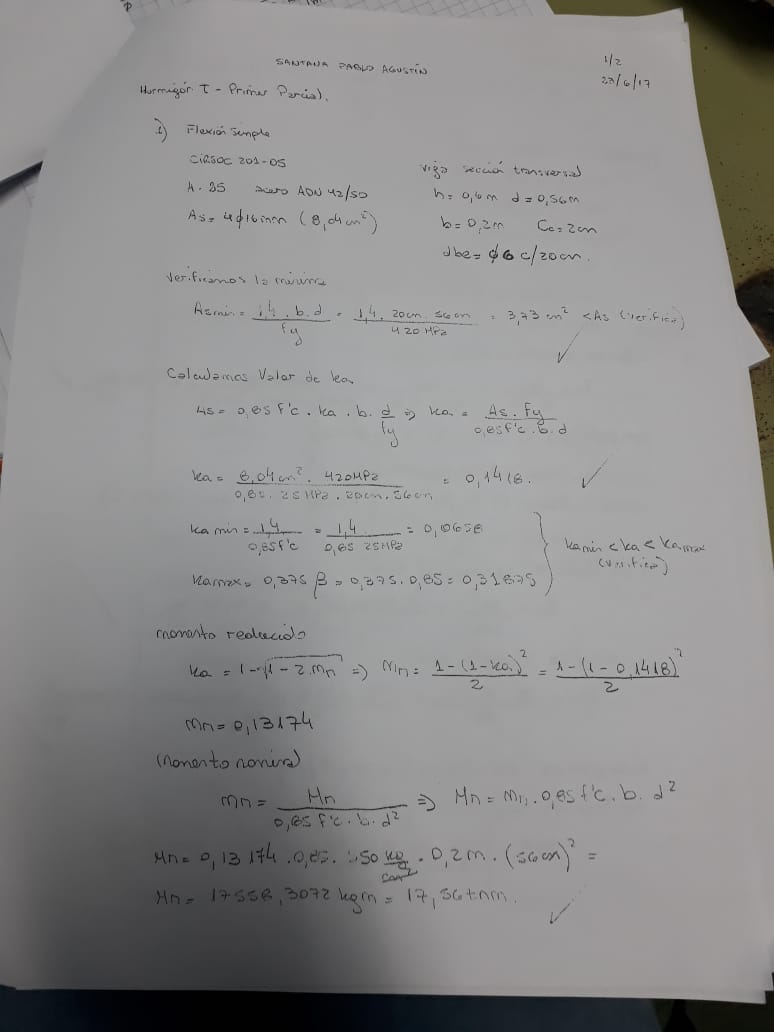 SANTANA PABLO AGUSTÍN
1/2
23/6/17
Hormigón I - Primer Parcial.
1) Flexión simple
CIRSOC 201-05
H-25 acero ADN 42/50
As= 4φ16mm (8,04cm²)
viga sección transversal
h= 0,6m d= 0,56m
b= 0,2m Cc= 2cm
dbe= φ6 c/20cm.
Verificamos la mínima
Asmin= 1,4 . b. d / fy = 1,4. 20cm. 56cm / 420 MPa = 3,73 cm² < As (verifica)
Calculamos Valor de ka
As = 0,85 f'c . ka . b. d/fy => ka = As . Fy / 0,85f'c . b. d
ka = 8,04cm² . 420MPa / 0,85. 25 MPa . 20cm. 56cm = 0,1418.
ka min = 1,4 / 0,85f'c = 1,4 / 0,85 25MPa = 0,0658
kamax= 0,375 β = 0,375. 0,85 = 0,31875
ka min < ka < ka max
(verifica)
momento reducido
ka = 1-√1-2.mn => mn= 1-(1-ka)² / 2 = 1-(1-0,1418)² / 2
mn= 0,13174
Momento nominal
mn = Mn / 0,85 f'c . b. d² => Mn = mn . 0,85 f'c . b. d²
Mn= 0,13174 . 0,85. 250 kg/cm² . 0,2m . (56cm)² =
Mn = 17558,3072 kgm = 17,56 tnm.